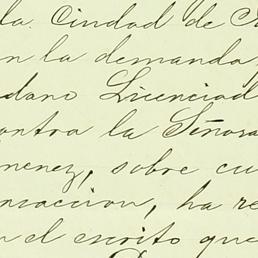 la Ciudad de
n la demanda
dano Licenciad
contra la Señora
menez, sobre cu
nsaccion, ha re
n el escrito que